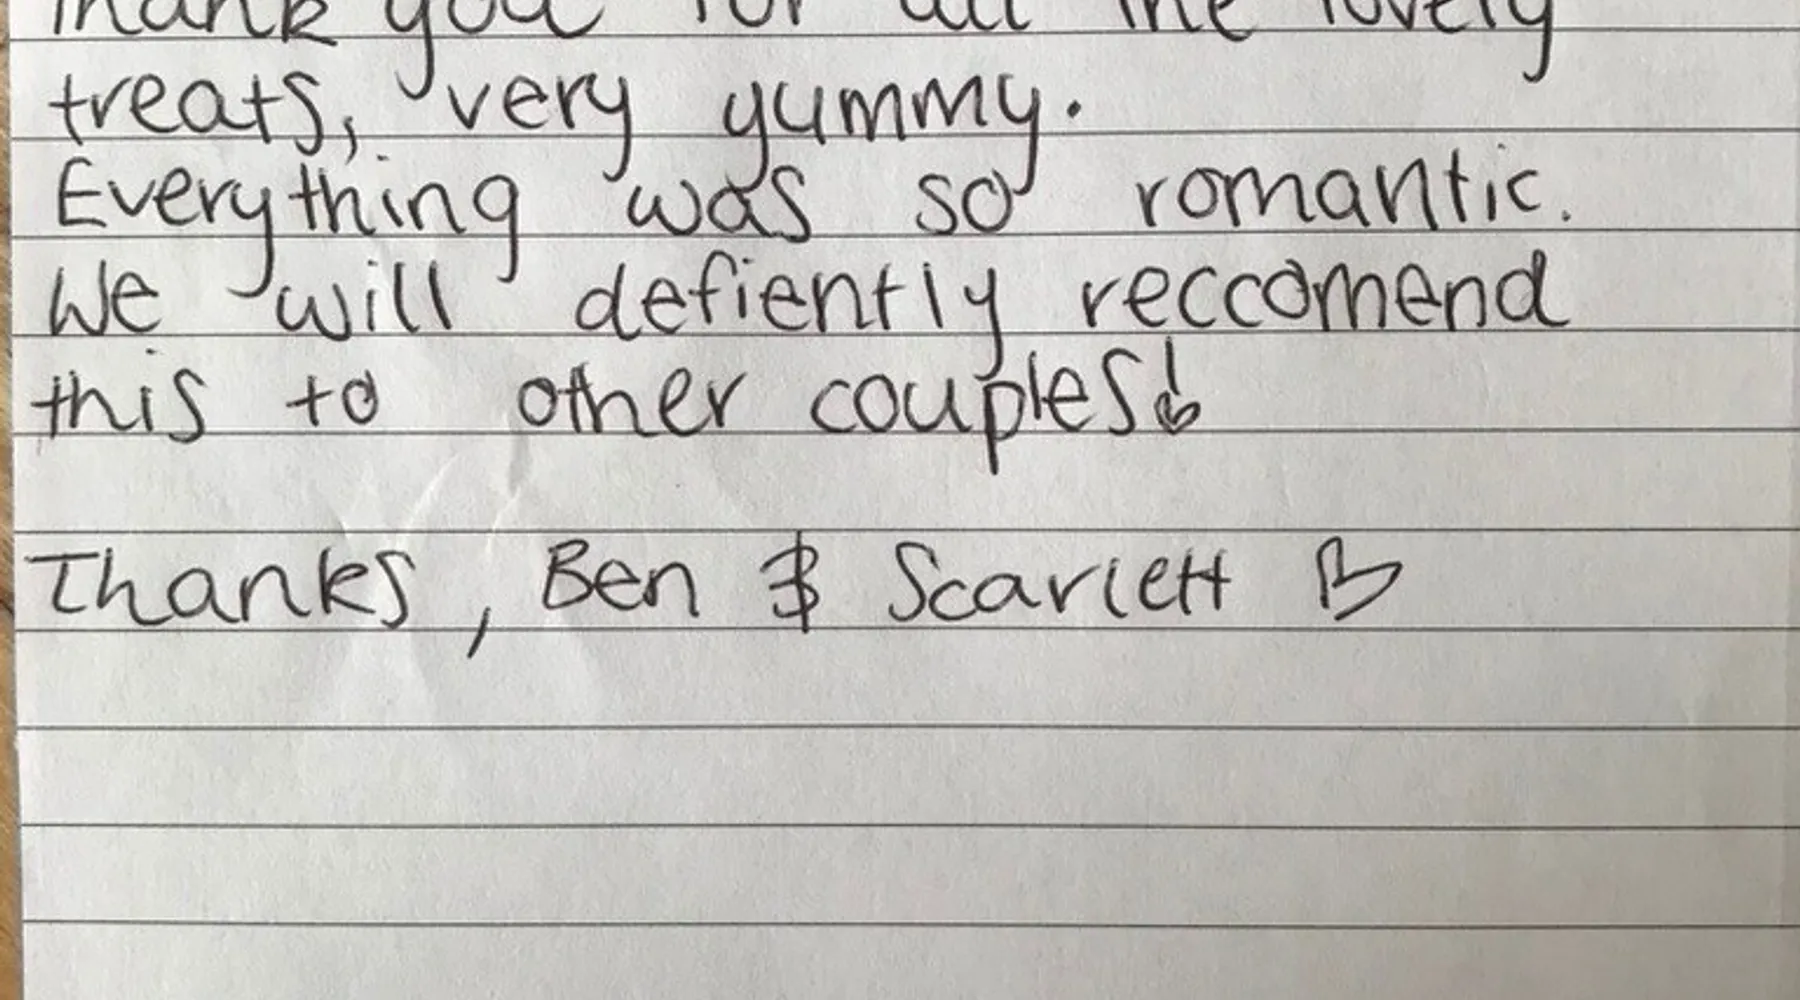 Thank you for all the lovely
treats, very yummy.
Everything was so romantic.
We will defiently reccomend
this to other couples!
Thanks, Ben & Scarlett ♡